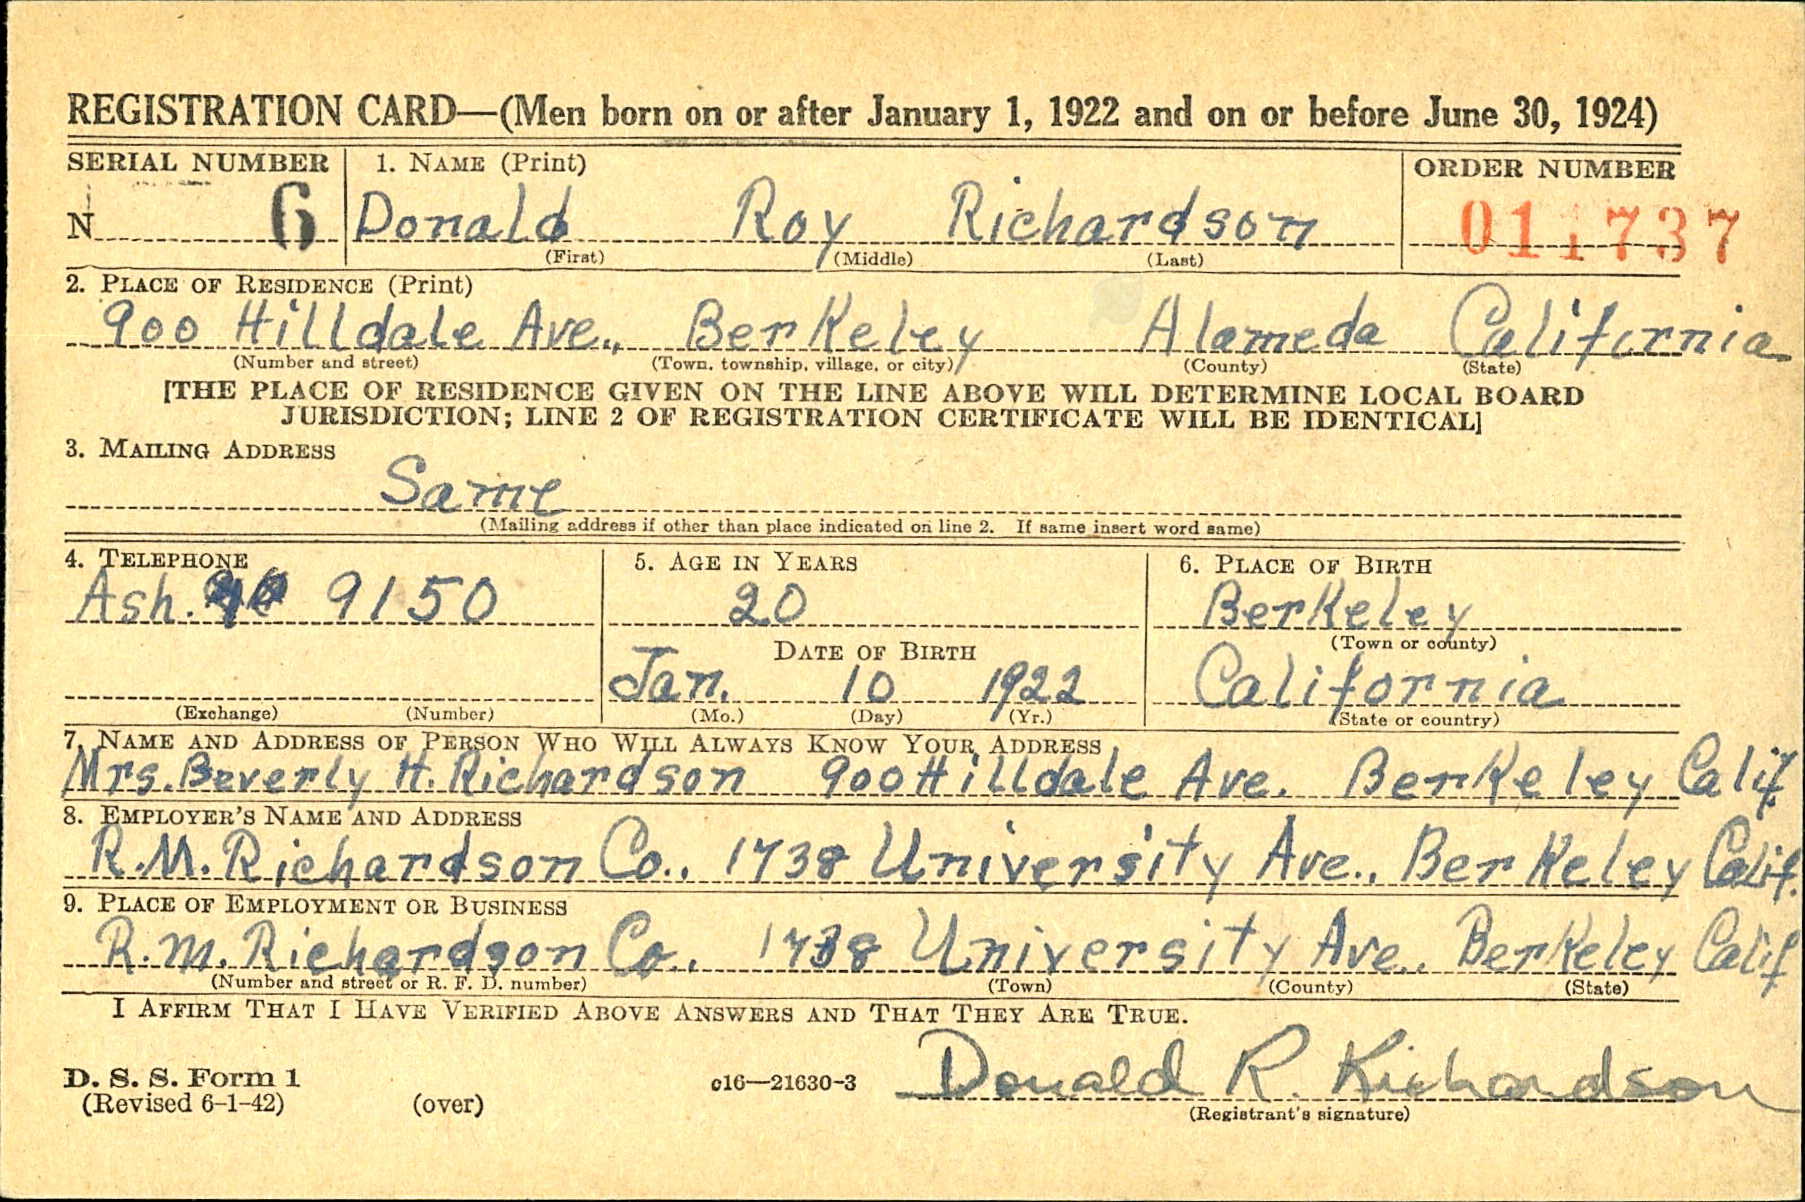 REGISTRATION CARD—(Men born on or after January 1, 1922 and on or before June 30, 1924)
SERIAL NUMBER 1. NAME (Print) ORDER NUMBER
N 6 Donald Roy Richardson 011737
(First) (Middle) (Last)
2. PLACE OF RESIDENCE (Print)
900 Hilldale Ave., Berkeley Alameda California
(Number and street) (Town, township, village, or city) (County) (State)
[THE PLACE OF RESIDENCE GIVEN ON THE LINE ABOVE WILL DETERMINE LOCAL BOARD
JURISDICTION; LINE 2 OF REGISTRATION CERTIFICATE WILL BE IDENTICAL]
3. MAILING ADDRESS
Same
(Mailing address if other than place indicated on line 2. If same insert word same)
4. TELEPHONE 5. AGE IN YEARS 6. PLACE OF BIRTH
Ash. 9150 20 Berkeley
(Town or county)
DATE OF BIRTH
Jan. 10 1922 California
(Exchange) (Number) (Mo.) (Day) (Yr.) (State or country)
7. NAME AND ADDRESS OF PERSON WHO WILL ALWAYS KNOW YOUR ADDRESS
Mrs. Beverly H. Richardson 900 Hilldale Ave. Berkeley Calif.
8. EMPLOYER'S NAME AND ADDRESS
R.M. Richardson Co., 1738 University Ave., Berkeley Calif.
9. PLACE OF EMPLOYMENT OR BUSINESS
R.M. Richardson Co., 1738 University Ave., Berkeley Calif
(Number and street or R. F. D. number) (Town) (County) (State)
I AFFIRM THAT I HAVE VERIFIED ABOVE ANSWERS AND THAT THEY ARE TRUE.
D. S. S. Form 1
(Revised 6-1-42) (over) c16—21630-3 Donald R. Richardson
(Registrant's signature)